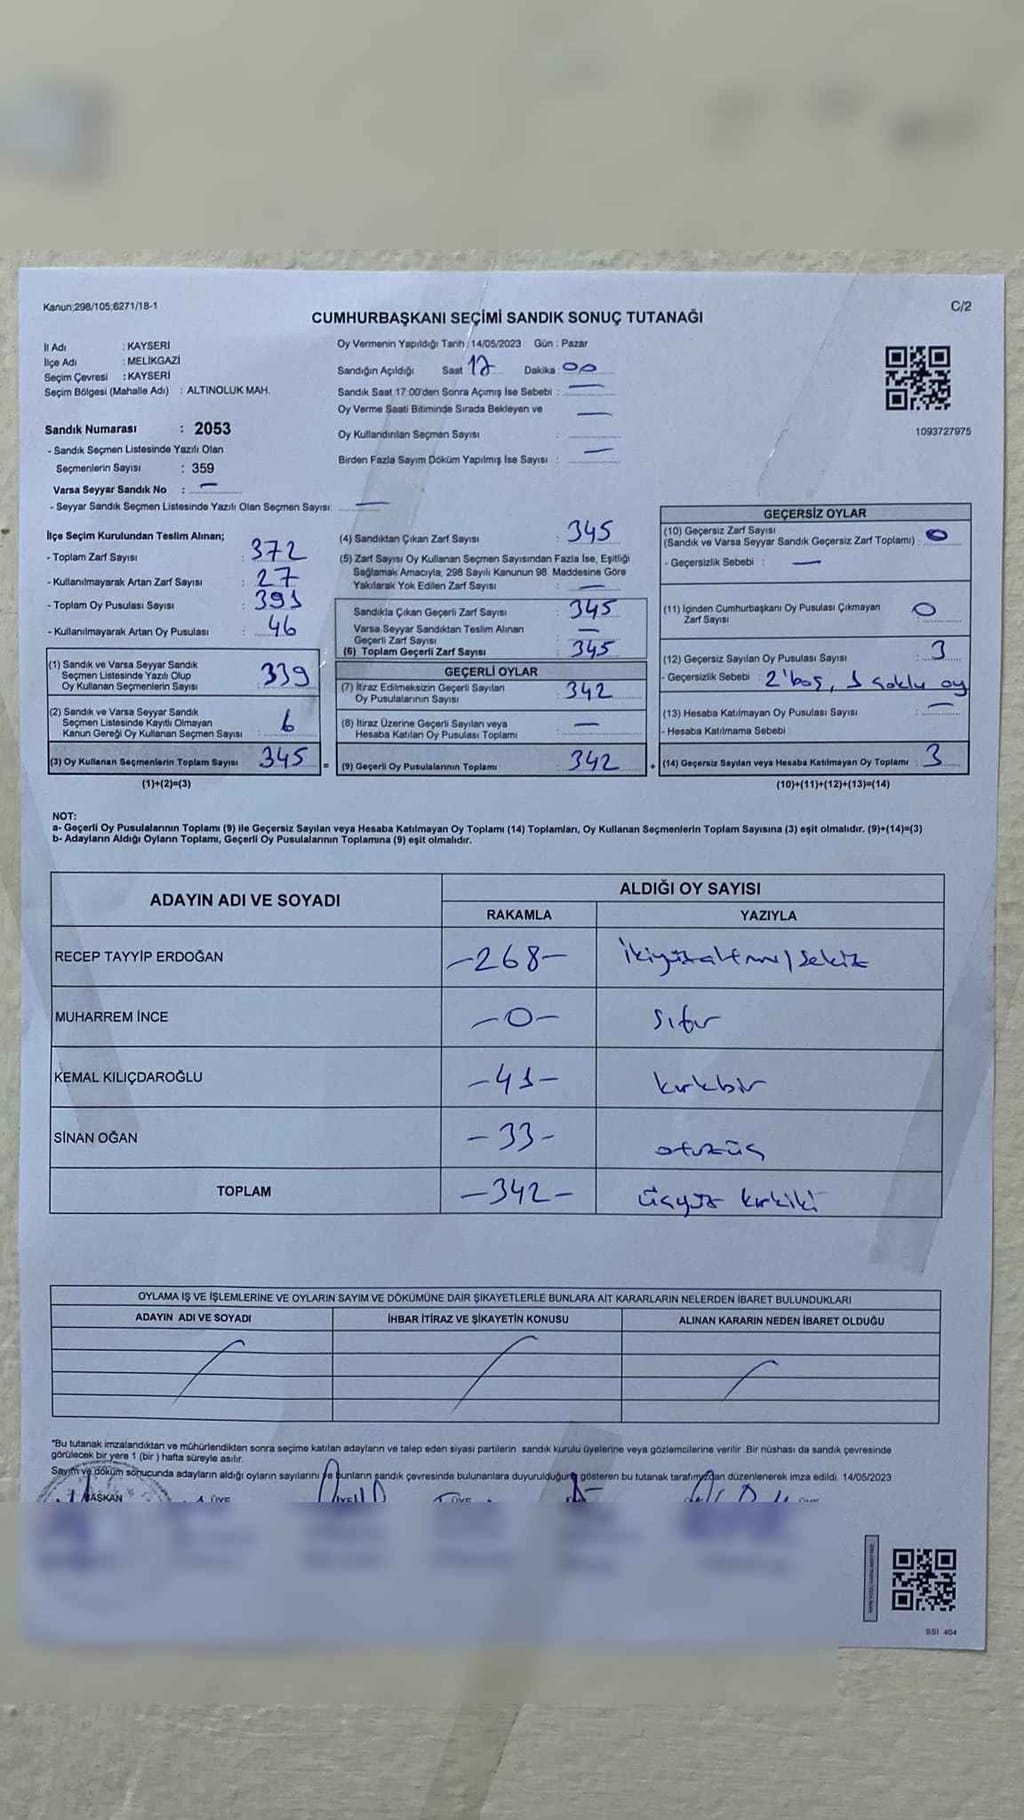 Kanun:298/105;6271/18-1
C/2
CUMHURBAŞKANI SEÇİMİ SANDIK SONUÇ TUTANAĞI
İl Adı : KAYSERİ
İlçe Adı : MELİKGAZİ
Seçim Çevresi : KAYSERİ
Seçim Bölgesi (Mahalle Adı) : ALTINOLUK MAH.
Sandık Numarası : 2053
- Sandık Seçmen Listesinde Yazılı Olan
Seçmenlerin Sayısı : 359
Varsa Seyyar Sandık No : —
- Seyyar Sandık Seçmen Listesinde Yazılı Olan Seçmen Sayısı: —
Oy Vermenin Yapıldığı Tarih : 14/05/2023 Gün : Pazar
Sandığın Açıldığı Saat 17 Dakika : 00
Sandık Saat 17:00'den Sonra Açımış İse Sebebi : —
Oy Verme Saati Bitiminde Sırada Bekleyen ve —
Oy Kullandırılan Seçmen Sayısı :
Birden Fazla Sayım Döküm Yapılmış İse Sayısı : —
1093727975
İlçe Seçim Kurulundan Teslim Alınan;
- Toplam Zarf Sayısı : 372
- Kullanılmayarak Artan Zarf Sayısı : 27
- Toplam Oy Pusulası Sayısı : 391
- Kullanılmayarak Artan Oy Pusulası : 46
(1) Sandık ve Varsa Seyyar Sandık
Seçmen Listesinde Yazılı Olup
Oy Kullanan Seçmenlerin Sayısı : 339
(2) Sandık ve Varsa Seyyar Sandık
Seçmen Listesinde Kayıtlı Olmayan
Kanun Gereği Oy Kullanan Seçmen Sayısı : 6
(3) Oy Kullanan Seçmenlerin Toplam Sayısı : 345
(1)+(2)=(3)
=
(4) Sandıktan Çıkan Zarf Sayısı : 345
(5) Zarf Sayısı Oy Kullanan Seçmen Sayısından Fazla İse, Eşitliği
Sağlamak Amacıyla, 298 Sayılı Kanunun 98. Maddesine Göre
Yakılarak Yok Edilen Zarf Sayısı : —
Sandıkta Çıkan Geçerli Zarf Sayısı : 345
Varsa Seyyar Sandıktan Teslim Alınan
Geçerli Zarf Sayısı : —
(6) Toplam Geçerli Zarf Sayısı : 345
GEÇERLİ OYLAR
(7) İtiraz Edilmeksizin Geçerli Sayılan
Oy Pusulalarının Sayısı : 342
(8) İtiraz Üzerine Geçerli Sayılan veya
Hesaba Katılan Oy Pusulası Toplamı : —
(9) Geçerli Oy Pusulalarının Toplamı : 342
+
GEÇERSİZ OYLAR
(10) Geçersiz Zarf Sayısı
(Sandık ve Varsa Seyyar Sandık Geçersiz Zarf Toplamı) : 0
- Geçersizlik Sebebi : —
(11) İçinden Cumhurbaşkanı Oy Pusulası Çıkmayan
Zarf Sayısı : 0
(12) Geçersiz Sayılan Oy Pusulası Sayısı : 3
- Geçersizlik Sebebi : 2'boş, 1 çoklu oy
(13) Hesaba Katılmayan Oy Pusulası Sayısı : —
- Hesaba Katılmama Sebebi
(14) Geçersiz Sayılan veya Hesaba Katılmayan Oy Toplamı : 3
(10)+(11)+(12)+(13)=(14)
NOT:
a- Geçerli Oy Pusulalarının Toplamı (9) ile Geçersiz Sayılan veya Hesaba Katılmayan Oy Toplamı (14) Toplamları, Oy Kullanan Seçmenlerin Toplam Sayısına (3) eşit olmalıdır. (9)+(14)=(3)
b- Adayların Aldığı Oyların Toplamı, Geçerli Oy Pusulalarının Toplamına (9) eşit olmalıdır.
ADAYIN ADI VE SOYADI
ALDIĞI OY SAYISI
RAKAMLA YAZIYLA
RECEP TAYYİP ERDOĞAN -268- ikiyüzaltmışsekiz
MUHARREM İNCE -0- sıfır
KEMAL KILIÇDAROĞLU -41- kırkbir
SİNAN OĞAN -33- otuzüç
TOPLAM -342- üçyüz kırkiki
OYLAMA İŞ VE İŞLEMLERİNE VE OYLARIN SAYIM VE DÖKÜMÜNE DAİR ŞİKAYETLERLE BUNLARA AİT KARARLARIN NELERDEN İBARET BULUNDUKLARI
ADAYIN ADI VE SOYADI İHBAR İTİRAZ VE ŞİKAYETİN KONUSU ALINAN KARARIN NEDEN İBARET OLDUĞU
*Bu tutanak imzalandıktan ve mühürlendikten sonra seçime katılan adayların ve talep eden siyasi partilerin sandık kurulu üyelerine veya gözlemcilerine verilir. Bir nüshası da sandık çevresinde
görülecek bir yere 1 (bir ) hafta süreyle asılır.
Sayım ve döküm sonucunda adayların aldığı oyların sayılarını ve bunların sandık çevresinde bulunanlara duyurulduğunu gösteren bu tutanak tarafımızdan düzenlenerek imza edildi. 14/05/2023
BAŞKAN
SSI 404